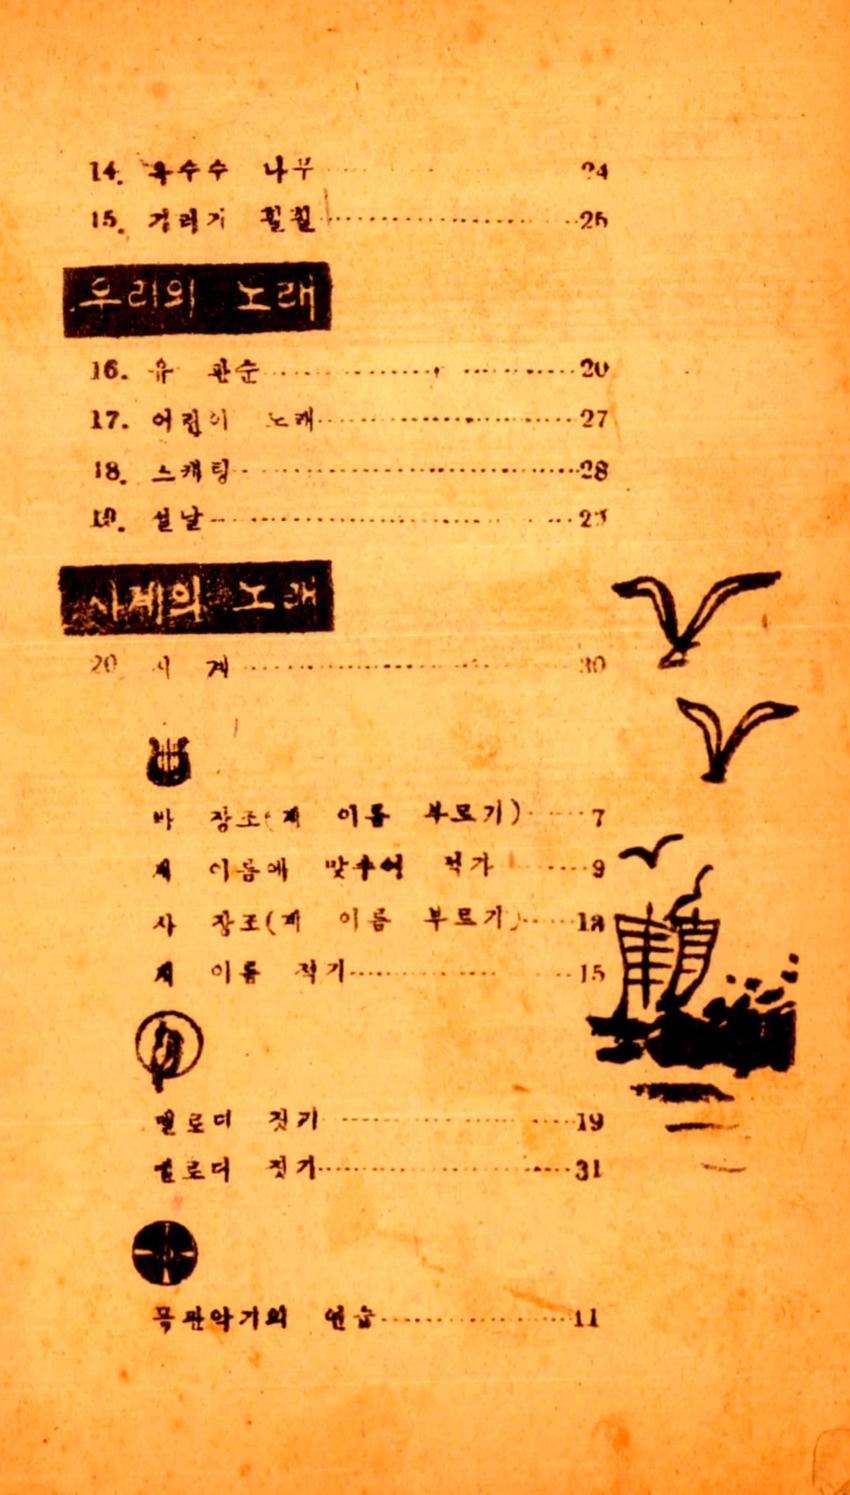 14. 옥수수 나무 24
15. 기러기 훨훨 25
우리의 노래
16. 유 관순 26
17. 어린이 노래 27
18. 스케팅 28
19. 설날
사계의 노래
20 사 계 30
바 장조(계 이름 부르기) 7
계 이름에 맞추어 적기 9
사 장조(계 이름 부르기)
계 이름 적기 15
멜로디 짓기 19
멜로디 짓기 31
목판악기의 연습 11